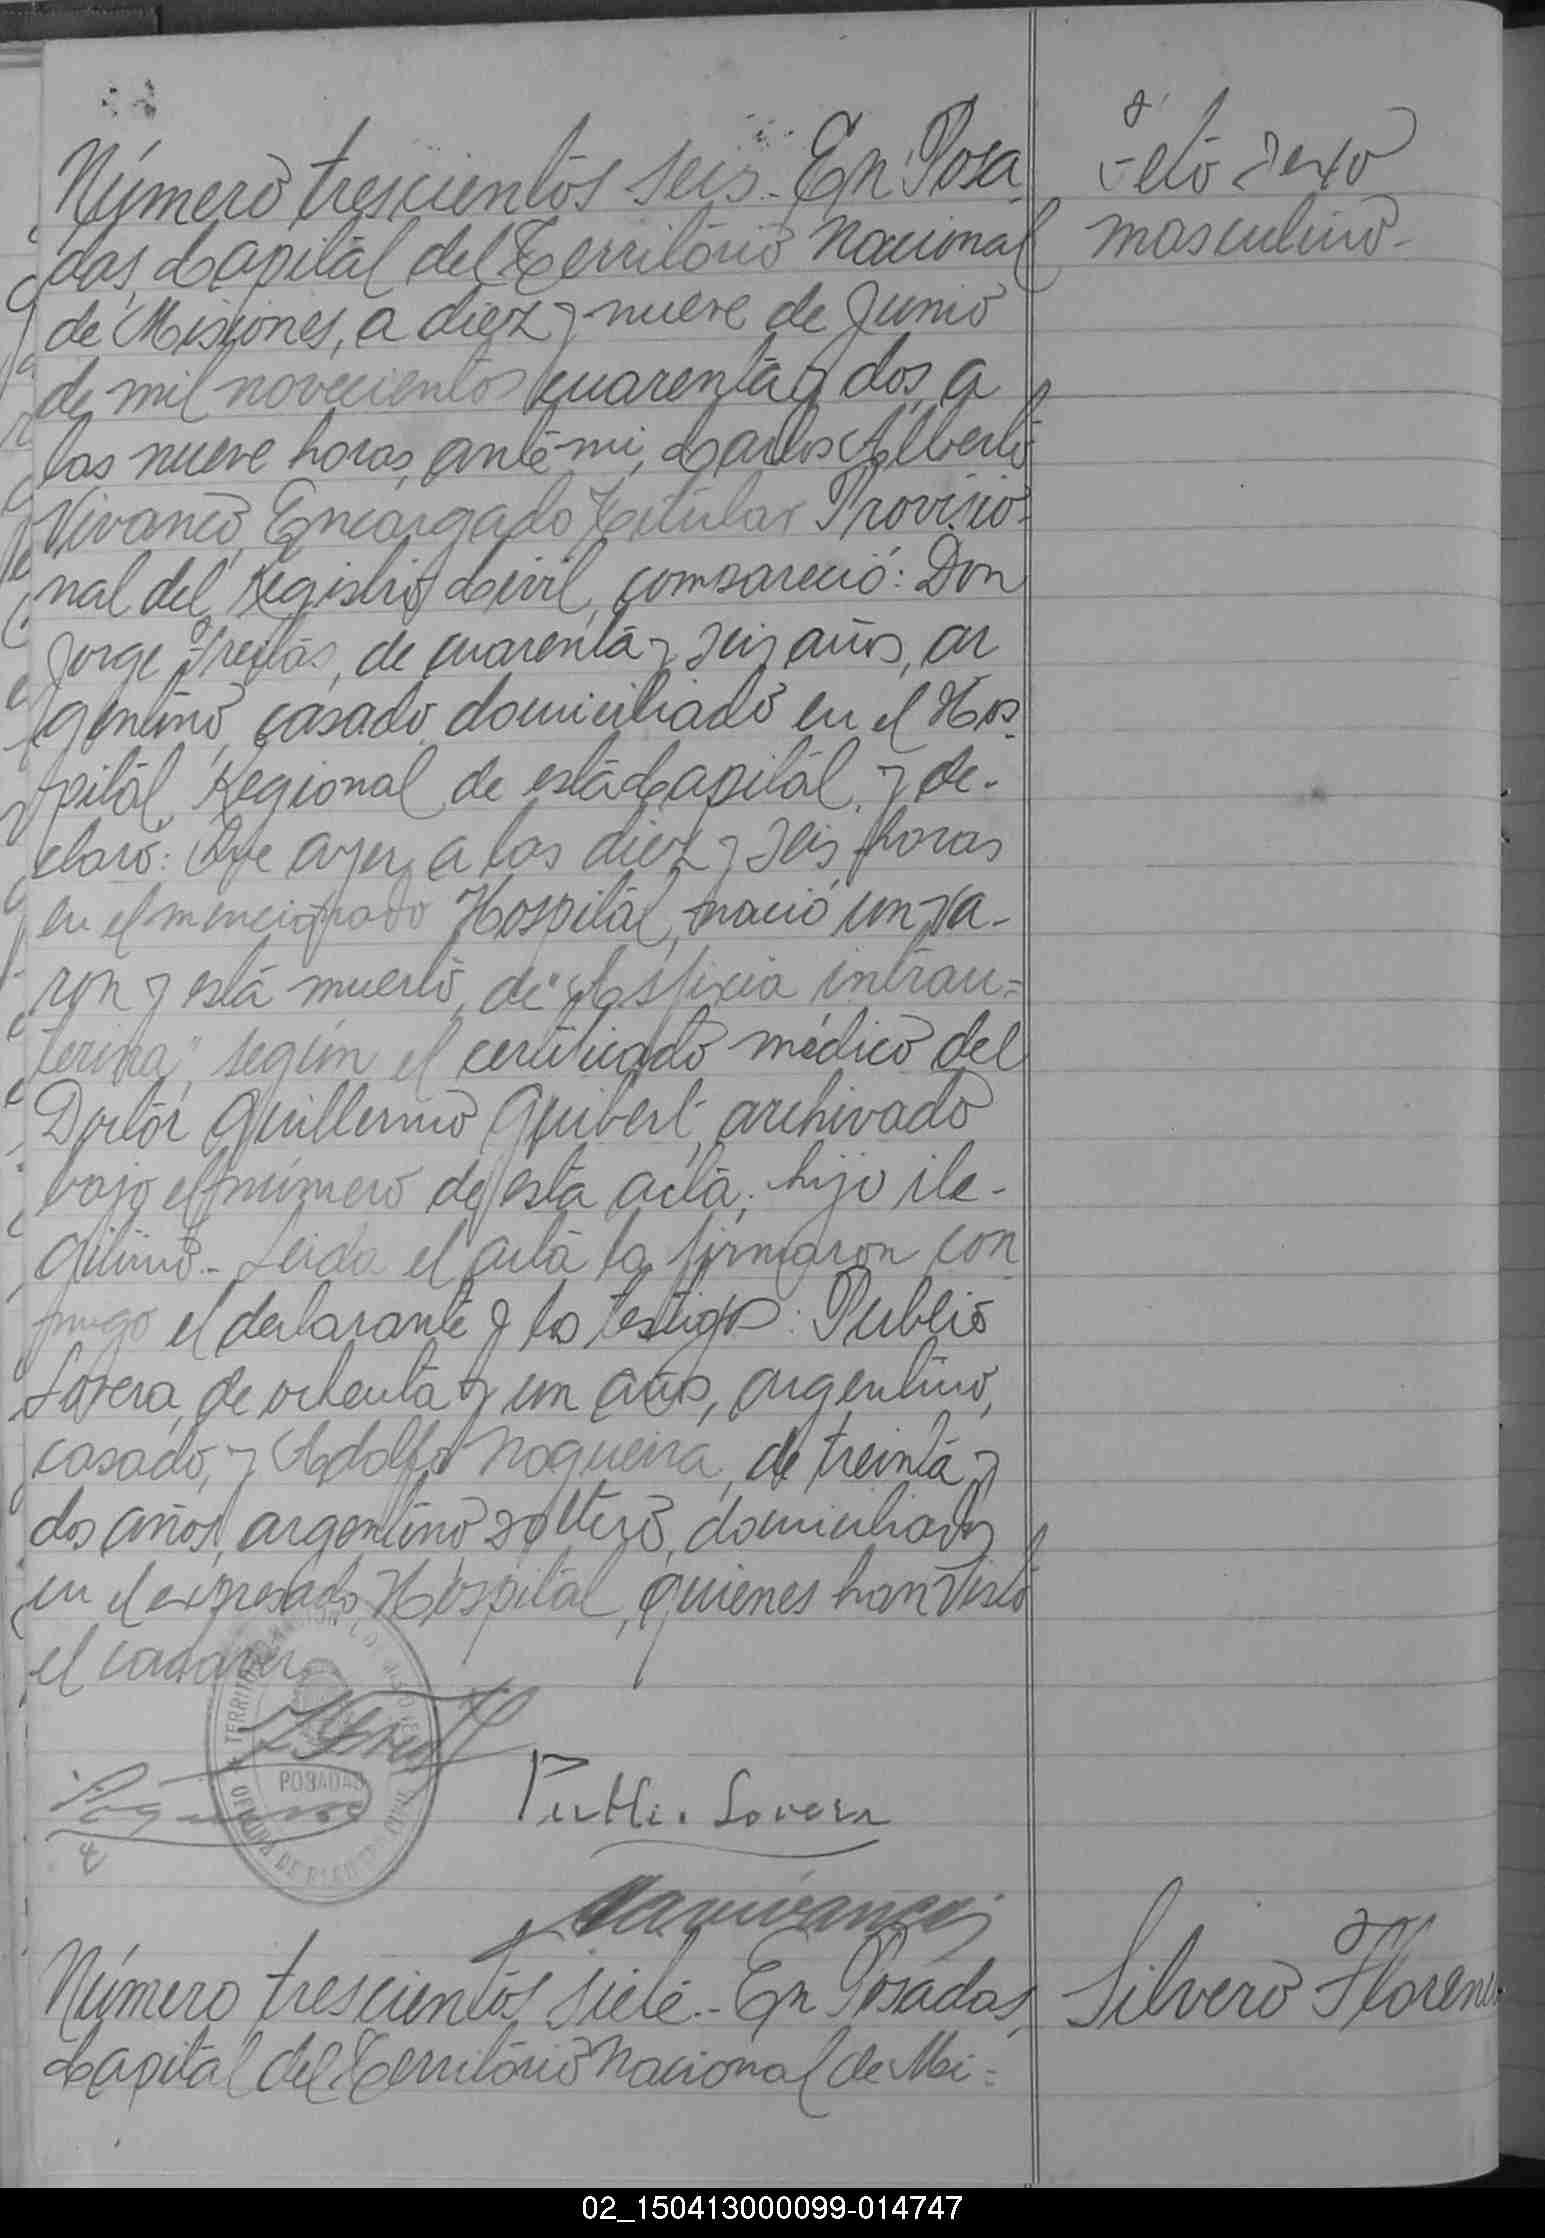 Número trescientos seis.- En Posa-
das, Capital del Territorio Nacional
de Misiones, a diez y nueve de Junio
de mil novecientos cuarenta y dos, a
las nueve horas, ante mi, Carlos Alberto
Vivanco, Encargado Titular Provisio-
nal del Registro Civil, compareció: Don
Jorge Freitas, de cuarenta y seis años, ar
gentino, casado, domiciliado en el Hos-
pital Regional de esta Capital, y de-
claró: Que ayer, a las diez y seis horas
en el mencionado Hospital, nació un va-
ron y está muerto, de "Asfixia intrau=
terina", según el certificado médico del
Doctor Guillermo Guibert, archivado
bajo el número de esta acta; hijo ile-
gitimo.- Leida el acta la firmaron con
migo el declarante y los testigos: Publio
Lovera, de ochenta y un años, argentino,
casado, y Adolfo Nogueira, de treinta y
dos años, argentino, soltero, domiciliados
en el expresado Hospital, quienes han visto
el cadaver.
Feto sexo
masculino-
POSADAS
Publio Lovera
Número trescientos siete.- En Posadas,
Capital del Territorio Nacional de Mi=
Silvero Floren
02_150413000099-014747